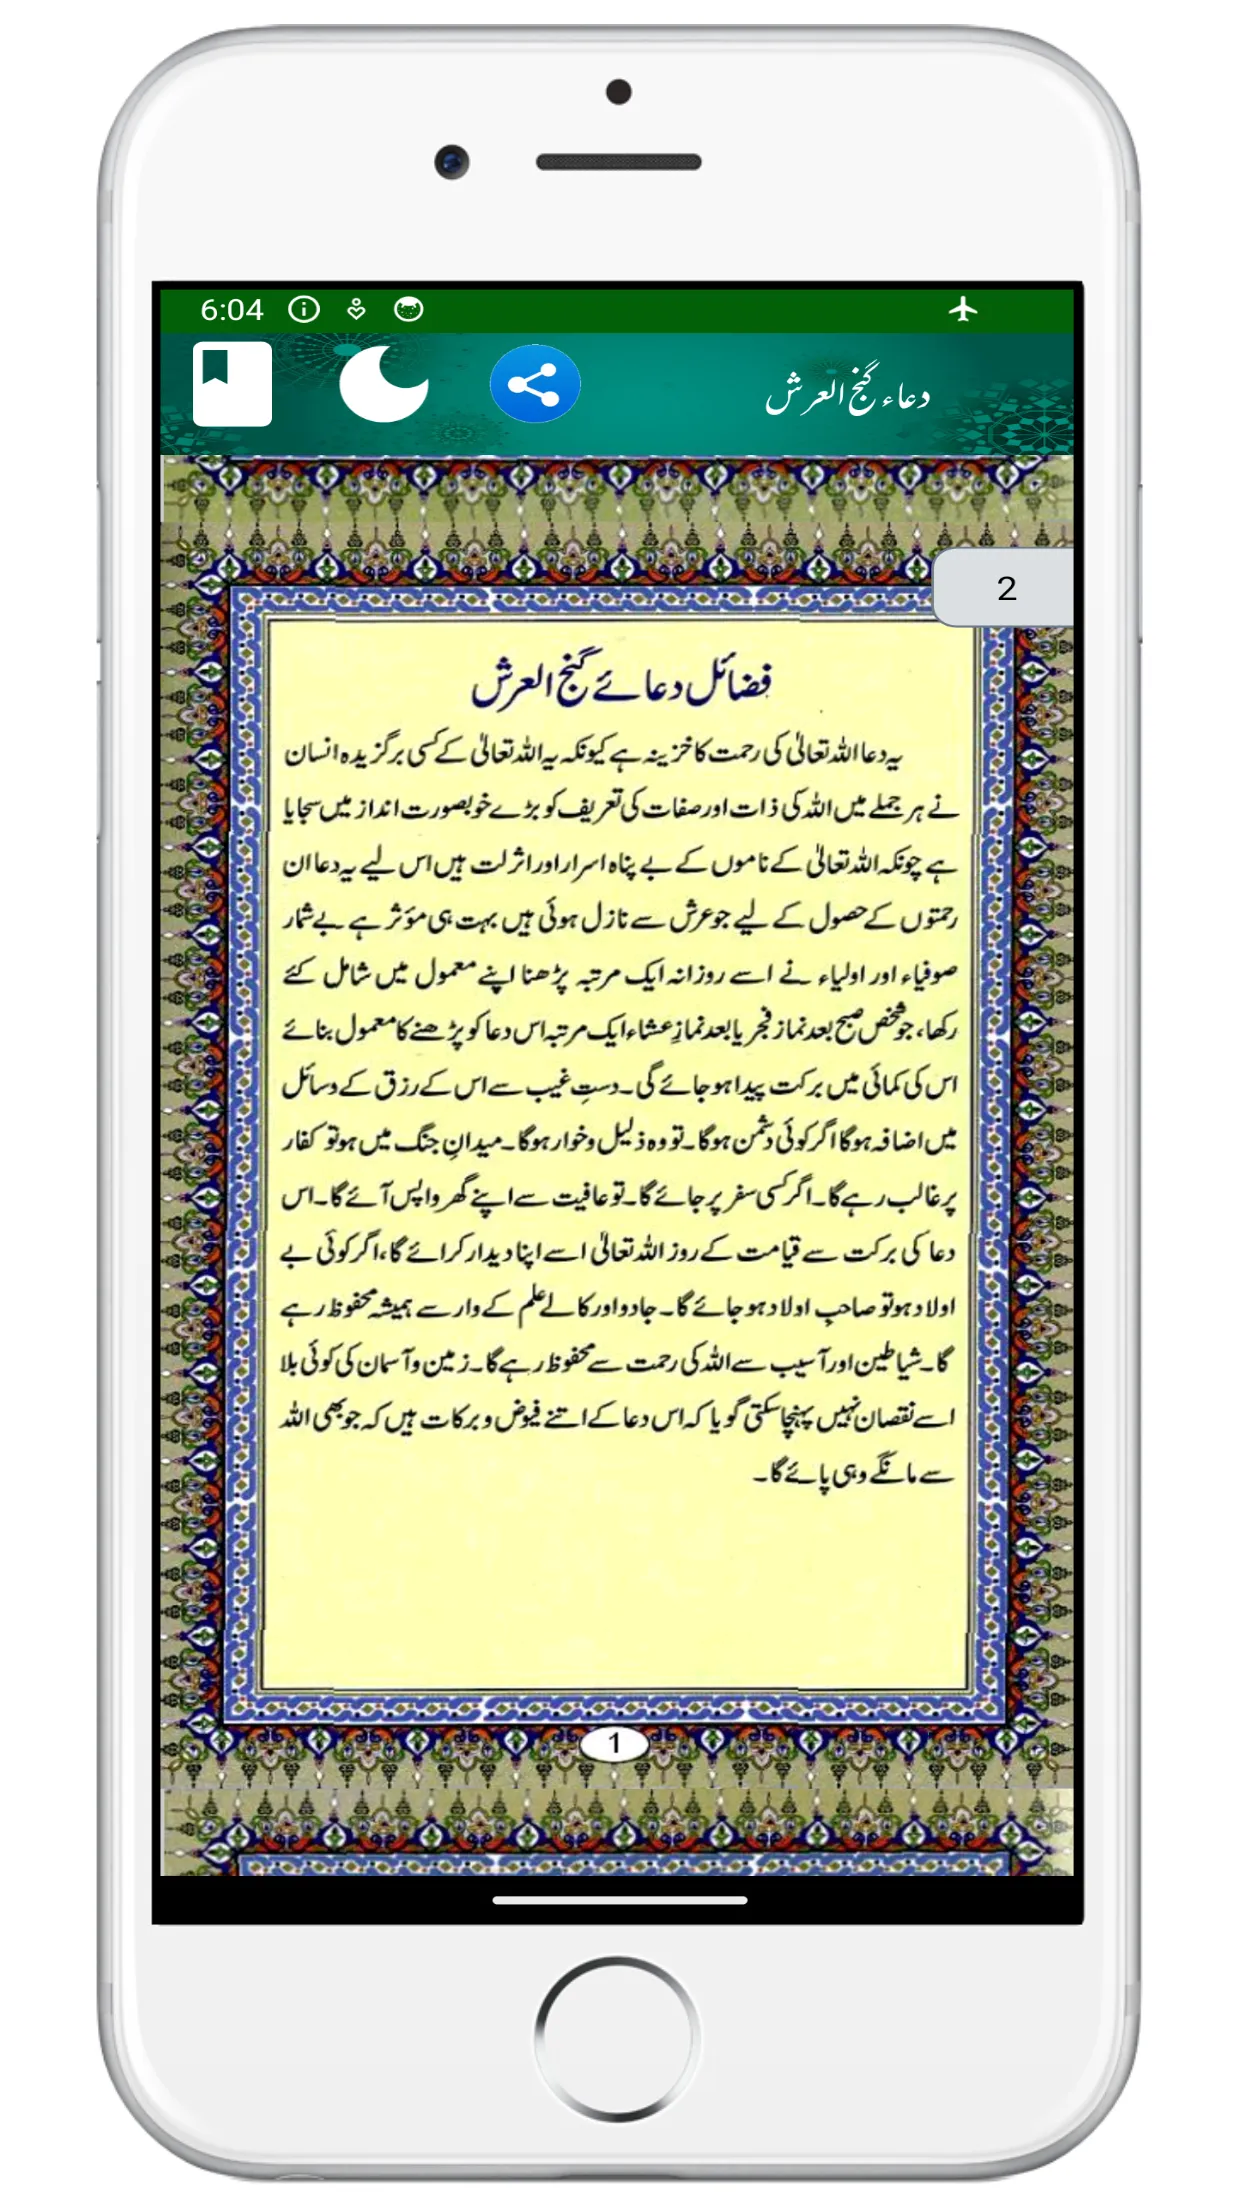 6:04
دعاء گنج العرش
2
فضائل دعائے گنج العرش
یہ دعا اللہ تعالیٰ کی رحمت کا خزینہ ہے کیونکہ یہ اللہ تعالیٰ کے کسی برگزیدہ انسان
نے ہر جملے میں اللہ کی ذات اور صفات کی تعریف کو بڑے خوبصورت انداز میں سجایا
ہے چونکہ اللہ تعالیٰ کے ناموں کے بے پناہ اسرار اور اثرات ہیں اس لیے یہ دعا ان
رحمتوں کے حصول کے لیے جو عرش سے نازل ہوئی ہیں بہت ہی مؤثر ہے بے شمار
صوفیاء اور اولیاء نے اسے روزانہ ایک مرتبہ پڑھنا اپنے معمول میں شامل کئے
رکھا، جو شخص صبح بعد نماز فجر یا بعد نمازِ عشاء ایک مرتبہ اس دعا کو پڑھنے کا معمول بنائے
اس کی کمائی میں برکت پیدا ہو جائے گی۔ دستِ غیب سے اس کے رزق کے وسائل
میں اضافہ ہوگا اگر کوئی دشمن ہوگا۔ تو وہ ذلیل و خوار ہوگا۔ میدانِ جنگ میں ہو تو کفار
پر غالب رہے گا۔ اگر کسی سفر پر جائے گا۔ تو عافیت سے اپنے گھر واپس آئے گا۔ اس
دعا کی برکت سے قیامت کے روز اللہ تعالیٰ اسے اپنا دیدار کرائے گا، اگر کوئی بے
اولاد ہو تو صاحبِ اولاد ہو جائے گا۔ جادو اور کالے علم کے وار سے ہمیشہ محفوظ رہے
گا۔ شیاطین اور آسیب سے اللہ کی رحمت سے محفوظ رہے گا۔ زمین و آسمان کی کوئی بلا
اسے نقصان نہیں پہنچا سکتی گویا کہ اس دعا کے اتنے فیوض و برکات ہیں کہ جو بھی اللہ
سے مانگے وہی پائے گا۔
1